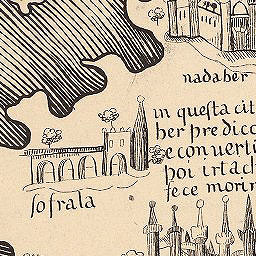 nadaber
in questa cit
ber predico
e convertì
poi irtach
fece morir
sofrala